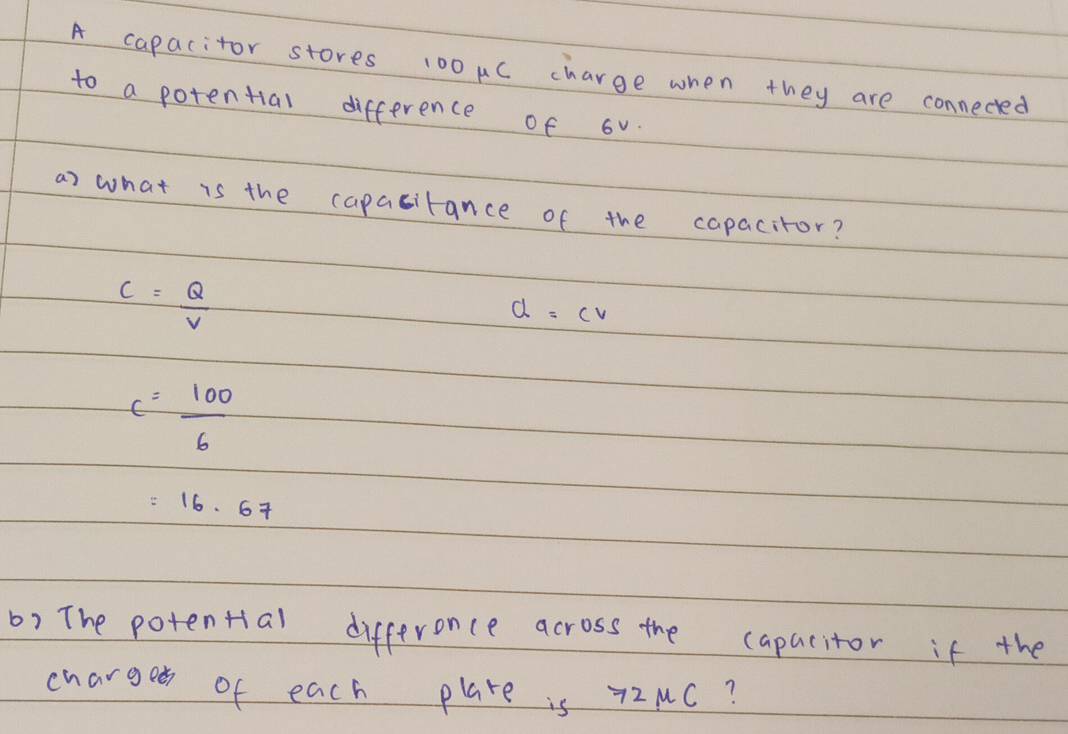 A capacitor stores 100 μC charge when they are connected
to a potential difference of 6V.
a) What is the capacitance of the capacitor?
C = Q/V    Q = CV
C = 100/6
= 16.67
b) The potential difference across the capacitor if the
charge of each plate is 72 μC ?